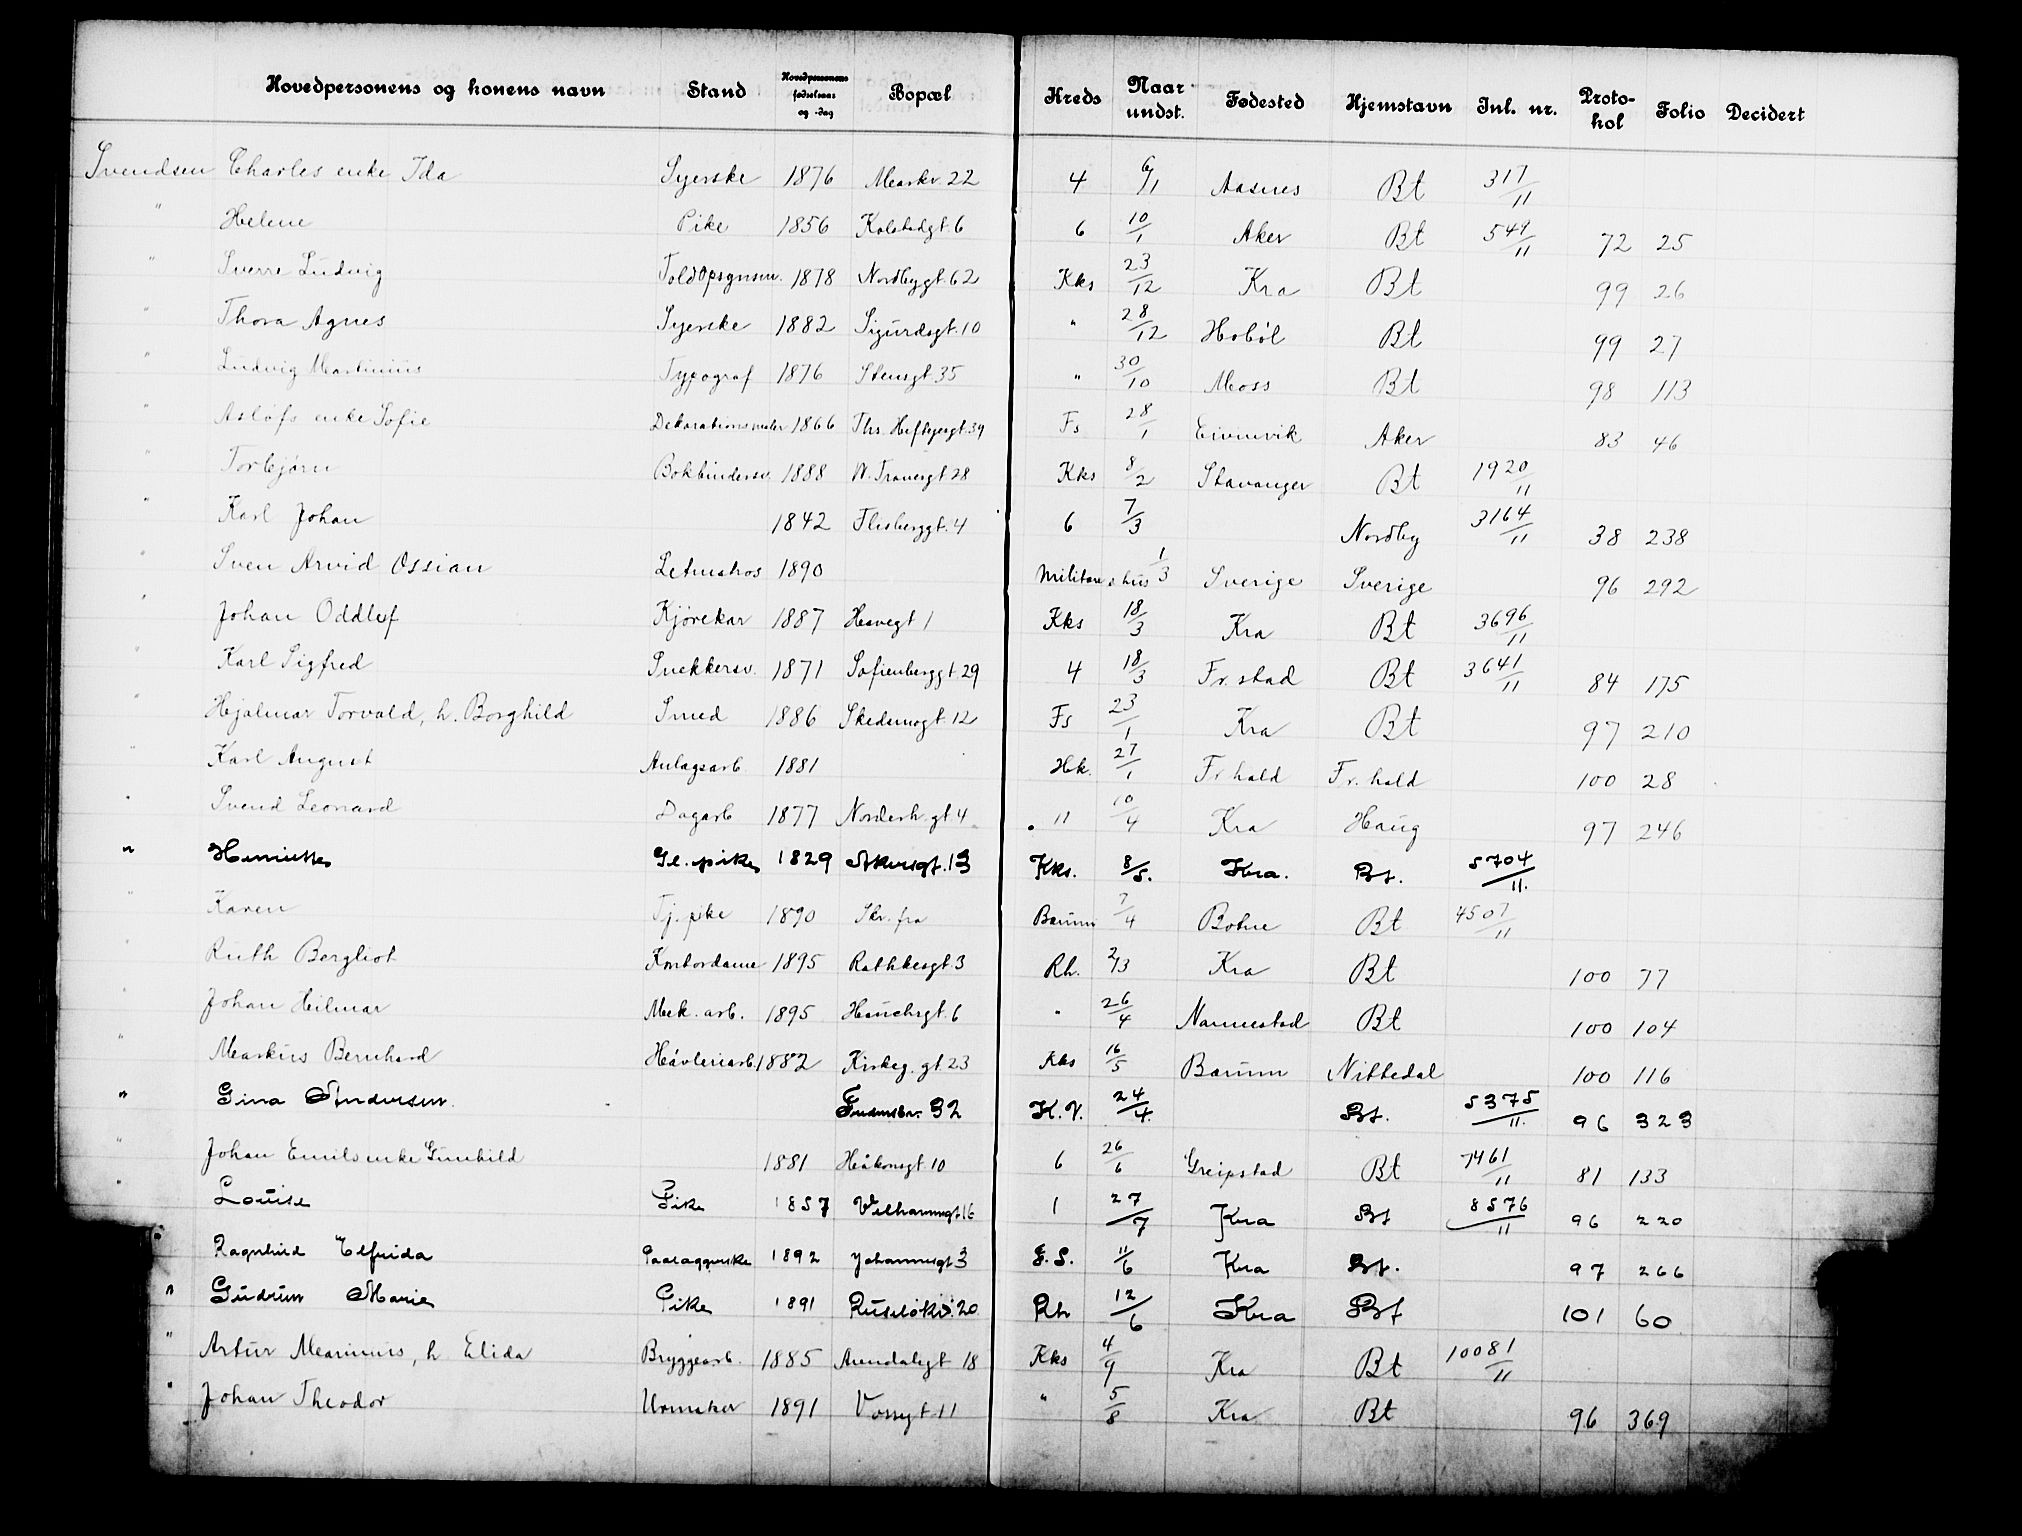 Hovedpersonens og konens navn Stand Hovedpersonens fødselsaar og -dag Bopæl Kreds Naar undst. Fødested Hjemstavn Inl. nr. Proto-kol Folio Decidert
Svendsen Charles enke Ida Syerske 1876 Markv. 22 4 6/1 Aasnes Bt 317/11
" Helene Pike 1856 Kolstadgt. 6 6 10/1 Aker Bt 549/11 72 25
" Sverre Ludvig Toldopsynsm. 1878 Nordbygt. 62 Kks 23/12 Kra Bt 99 26
" Thora Agnes Syerske 1882 Sigurdsgt. 10 " 28/12 Hobøl Bt 99 27
" Ludvig Martinius Typograf 1876 Stensgt. 35 " 30/10 Moss Bt 98 113
" Asløfs enke Sofie Dekorationsmaler 1866 Ths. Heftyesgt. 39 Fs 28/1 Eivinvik Aker 83 46
" Torbjørn Bokbindersv. 1888 W. Tranesgt 28 Kks 8/2 Stavanger Bt 1920/11
" Karl Johan 1842 Flisberggt. 4 6 7/3 Nordby 3164/11 38 238
" Sven Arvid Ossian Letmatros 1890 Militære shus 1/3 Sverige Sverige 96 292
" Johan Oddlef Kjørekar 1887 Havegt 1 Kks 18/3 Kra Bt 3696/11
" Karl Sigfred Snekkersv. 1871 Sofienberggt 29 4 18/3 Fr. stad Bt 3641/11 84 175
" Hjalmar Torvald, h. Borghild Smed 1886 Skedsmogt. 12 Fs 23/1 Kra Bt 97 210
" Karl August Anlagsarb. 1881 Hk. 27/1 Fr hald Fr. hald 100 28
" Svend Leonard Dagarb 1877 Norderh. gt. 4 " 10/4 Kra Haug 97 246
" Henriette Gl. pike 1829 Akersgt. 13 Kks. 8/5. Kra. Bt. 5704/11.
" Karen Tj. pike 1890 Skr. fra Bærum 7/4 Botne Bt 4507/11
" Ruth Bergliot Kontordame 1895 Rathkesgt. 3 Rh. 2/13 Kra Bt 100 77
" Johan Hilmar Mek. arb. 1895 Hauchsgt. 6 " 26/4 Nannestad Bt 100 104
" Markus Bernhard Høvleriarb. 1882 Kirkeg. gt. 23 Kks 16/5 Bærum Nittedal 100 116
" Gina Andersen. 32 K. V. 24/4. Bt. 5375/11. 96 323
" Johan Emils enke Gunhild 1881 Håkonsgt. 10 6 26/6 Greipstad Bt 7461/11 81 133
" Louise Pike 1857 16 1 27/7 Kra Bt 8576/11 96 220
" Ragnhild Elfrida Paalæggerske 1892 Johannesgt 3 G. S. 11/6 Kra Bt. 97 266
" Gudrun Marie Pike 1891 Ruseløkv. 20 Rh 12/6 Kra Bt 101 60
" Artur Marinius, h Elida Bryggearb. 1885 Arendalsgt 18 Kks 4/9 Kra Bt 10081/11
" Johan Theodor Urmaker 1891 Vossgt. 11 " 5/8 Kra Bt 96 369